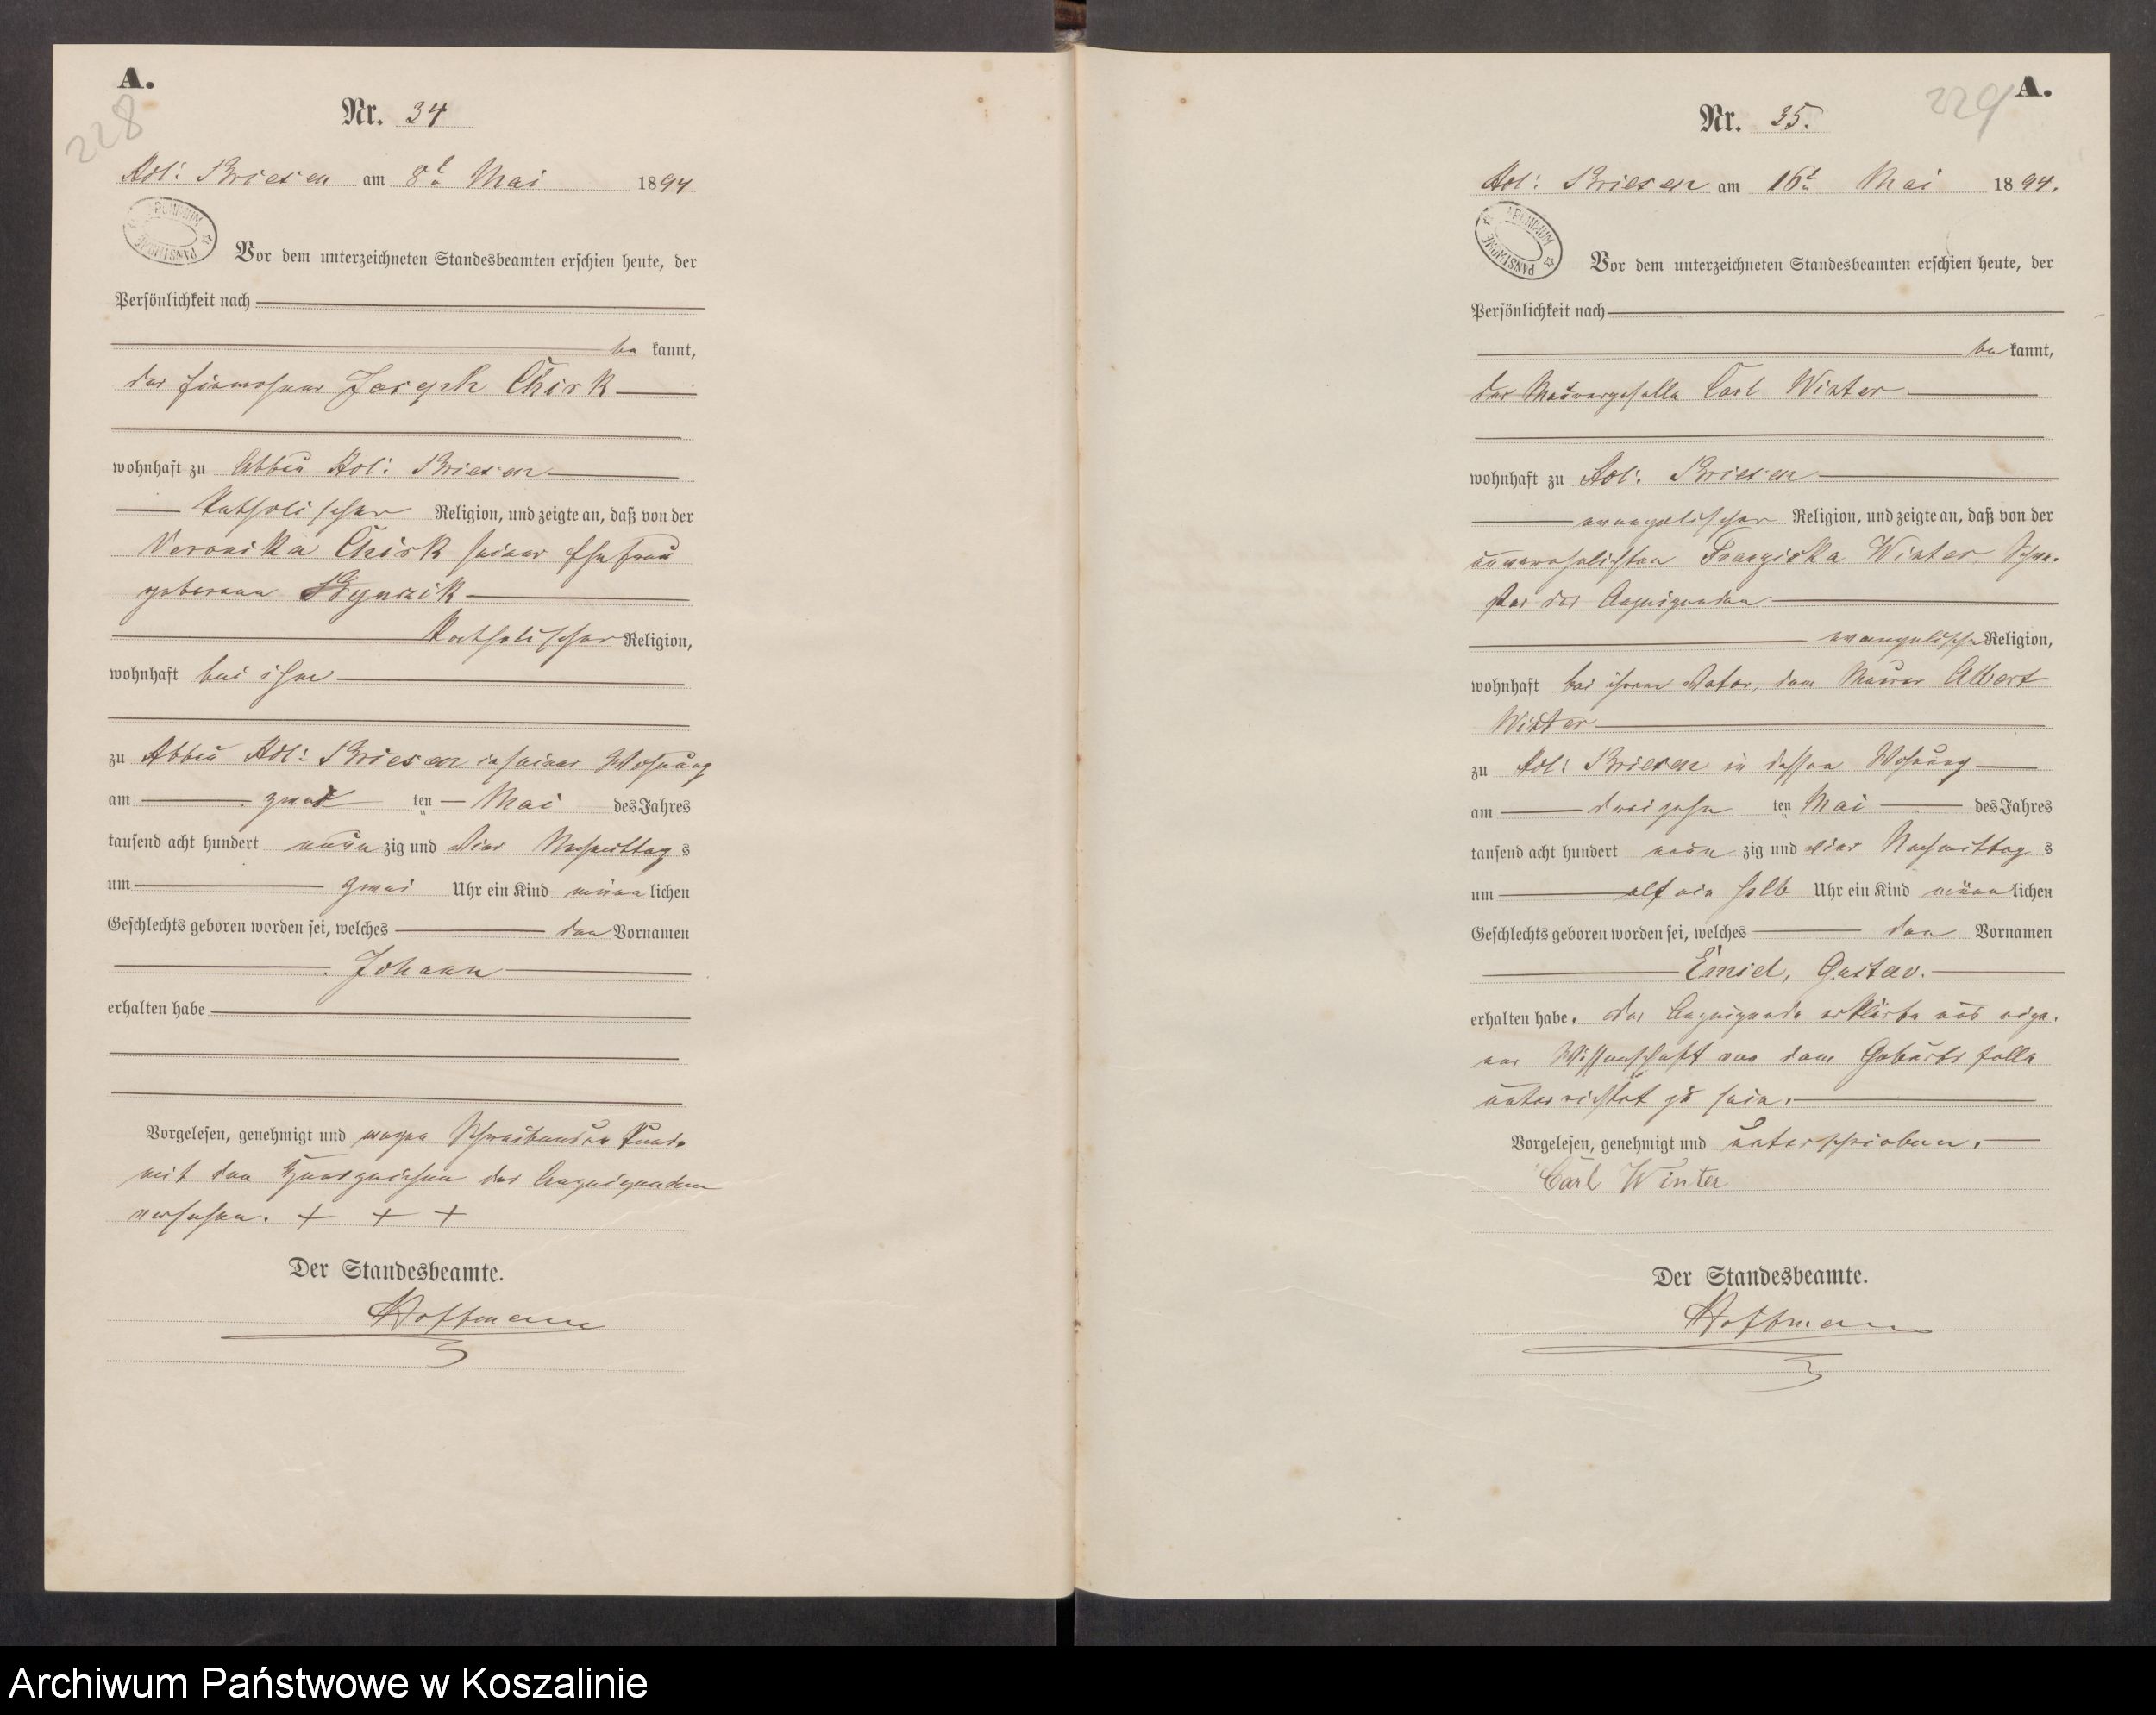 A.
228
Nr. 34
Adl: Briesen am 8t Mai 1894
Vor dem unterzeichneten Standesbeamten erschien heute, der
Persönlichkeit nach
be kannt,
der Einwohner Joseph Chirk
wohnhaft zu Abbau Adl: Briesen
katholischer Religion, und zeigte an, daß von der
Veronika Chirk seiner Ehefrau
geborene
katholischer Religion,
wohnhaft bei ihm
zu Abbau Adl: Briesen in seiner Wohnung
am zwei ten Mai des Jahres
tausend acht hundert neun zig und vier Nachmittag s
um zwei Uhr ein Kind männ lichen
Geschlechts geboren worden sei, welches den Vornamen
Johann
erhalten habe
Vorgelesen, genehmigt und wegen Schreibensun kunde
mit den Handzeichen des Anzeigenden
versehen. + + +
Der Standesbeamte.
Hoffmann
A.
229
Nr. 35.
Adl: Briesen am 16t Mai 1894.
Vor dem unterzeichneten Standesbeamten erschien heute, der
Persönlichkeit nach
be kannt,
der Maurergeselle Carl Winter
wohnhaft zu Adl: Briesen
evangelischer Religion, und zeigte an, daß von der
unverehelichten Franziska Winter, Schwe-
ster des Anzeigenden
evangelisch Religion,
wohnhaft bei ihrem Vater, dem Maurer Albert
Winter
zu Adl: Briesen in dessen Wohnung
am dreizehn ten Mai des Jahres
tausend acht hundert neun zig und vier Nachmittag s
um elf ein halb Uhr ein Kind männ lichen
Geschlechts geboren worden sei, welches den Vornamen
Emiel, Gustav.
erhalten habe. Der Anzeigende erklärte aus eige-
ner Wissenschaft von dem Geburtsfalle
unterrichtet zu sein.
Vorgelesen, genehmigt und unterschrieben.
Carl Winter
Der Standesbeamte.
Hoffmann
Archiwum Państwowe w Koszalinie